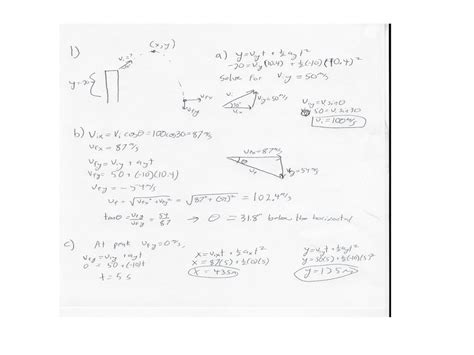 1)
(x,y)
a) y=v_iy t + ½ a_y t²
-20 = v_iy(10.4) + ½(-10)(10.4)²
Solve for v_iy = 50 m/s
y=-20
v_i
v_iy = 50 m/s
30°
v_ix
v_iy = v_i sinθ
50 = v_i sin30
v_i = 100 m/s
b) v_ix = v_i cosθ = 100cos30 = 87 m/s
v_fx = 87 m/s
v_fy = v_iy + a_y t
v_fy = 50 + (-10)(10.4)
v_fy = -54 m/s
v_fx = 87 m/s
v_f
v_fy = 54 m/s
v_f = √(v_fx² + v_fy²) = √(87² + (54)²) = 102.4 m/s
tanθ = v_fy/v_fx = 54/87 → θ = 31.8° below the horizontal
c) At peak v_fy = 0 m/s,
v_fy = v_iy + a_y t
0 = 50 + (-10)t
t = 5 s
x = v_ix t + ½ a_x t²
x = 87(5) + ½(0)(5)
x = 435 m
y = v_iy t + ½ a_y t²
y = 50(5) + ½(-10)(5)²
y = 125 m